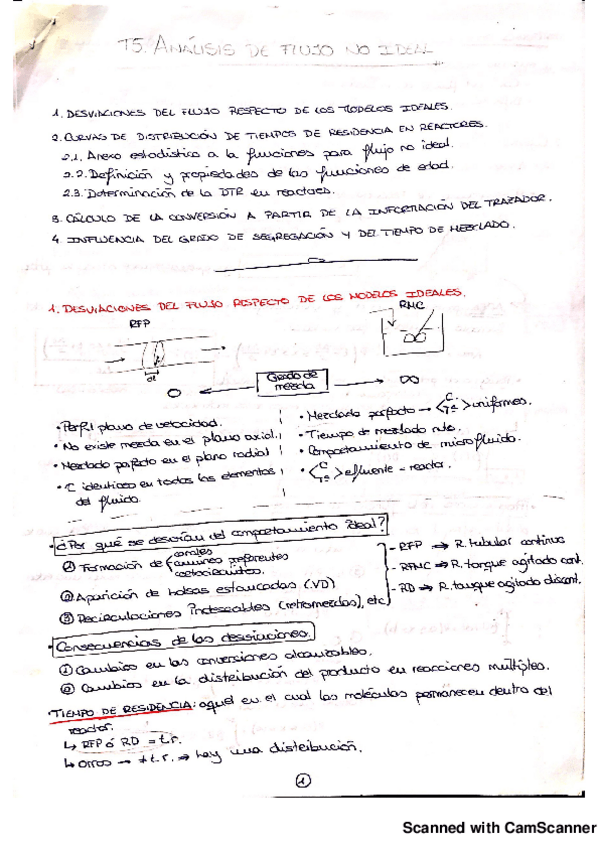 T5. ANÁLISIS DE FLUJO NO IDEAL
1. DESVIACIONES DEL FLUJO RESPECTO DE LOS MODELOS IDEALES.
2. CURVAS DE DISTRIBUCIÓN DE TIEMPOS DE RESIDENCIA EN REACTORES.
2.1. Anexo estadístico a la funciones para flujo no ideal.
2.2. Definición y propiedades de las funciones de edad.
2.3. Determinación de la DTR en reactores.
3. CÁLCULO DE LA CONVERSIÓN A PARTIR DE LA INFORMACIÓN DEL TRAZADOR.
4. INFLUENCIA DEL GRADO DE SEGREGACIÓN Y DEL TIEMPO DE MEZCLADO.
1. DESVIACIONES DEL FLUJO RESPECTO DE LOS MODELOS IDEALES.
RFP
RMC
dl
0 ← Grado de mezcla → ∞
• Perfil plano de velocidad.
• No existe mezcla en el plano axial.
• Mezclado perfecto en el plano radial
• C idénticas en todos los elementos del fluido.
• Mezclado perfecto → < C, Tª > uniformes.
• Tiempo de mezclado nulo.
• Comportamiento de microfluido.
• < C, Tª > efluente = reactor.
• ¿Por qué se desvían del comportamiento ideal?
① Formación de canales caminos preferentes cortocircuitos.
② Aparición de bolsas estancadas (VD)
③ Recirculaciones (retromezclas), etc
- RFP ⇒ R. tubular continuo
- RFMC ⇒ R. tanque agitado cont.
- RD ⇒ R. tanque agitado discont.
• Consecuencias de las desviaciones.
① Cambios en las conversiones alcanzables.
② Cambios en la distribución del producto en reacciones múltiples.
• TIEMPO DE RESIDENCIA: aquel en el cual las moléculas permanecen dentro del
reactor.
↳ RFP ó RD = t.r.
↳ Otros → ≠ t.r. ⇒ hay una distribución.
1
Scanned with CamScanner